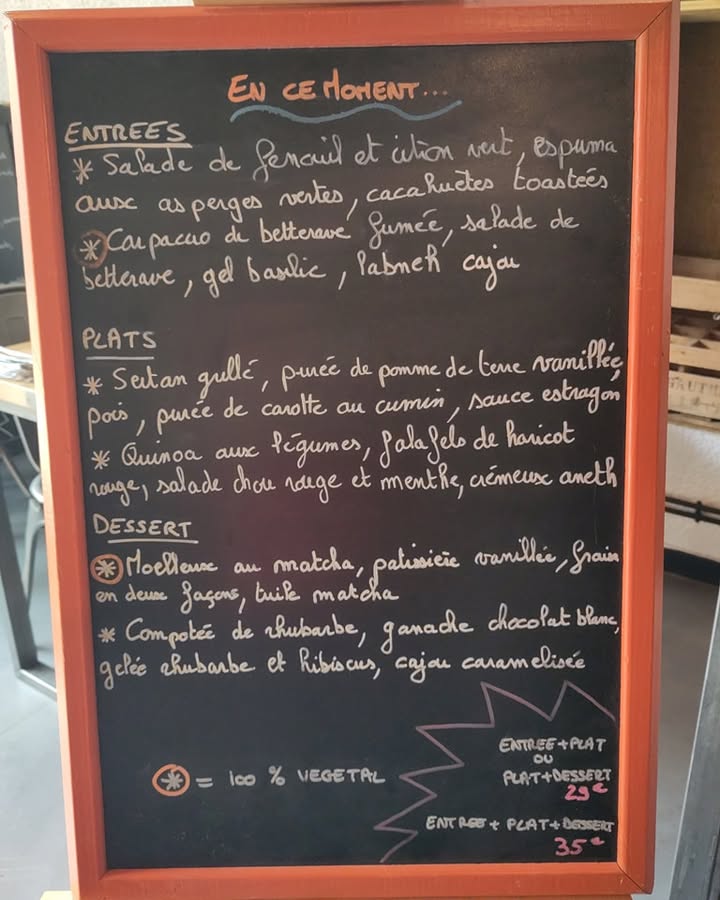 EN CE MOMENT...
ENTREES
* Salade de fenouil et citron vert, espuma
aux asperges vertes, cacahuètes toastées
* Carpaccio de betterave fumée, salade de
betterave, gel basilic, labneh cajou
PLATS
* Seitan grillé, purée de pomme de terre vanillée,
pois, purée de carotte au cumin, sauce estragon
* Quinoa aux légumes, falafels de haricot
rouge, salade chou rouge et menthe, crémeux aneth
DESSERT
* Moelleux au matcha, patissière vanillée, fraise
en deux façons, tuile matcha
* Compotée de rhubarbe, ganache chocolat blanc,
gelée rhubarbe et hibiscus, cajou caramelisée
* = 100 % VEGETAL
ENTREE+PLAT
OU
PLAT+DESSERT
29€
ENTREE+PLAT+DESSERT
35€